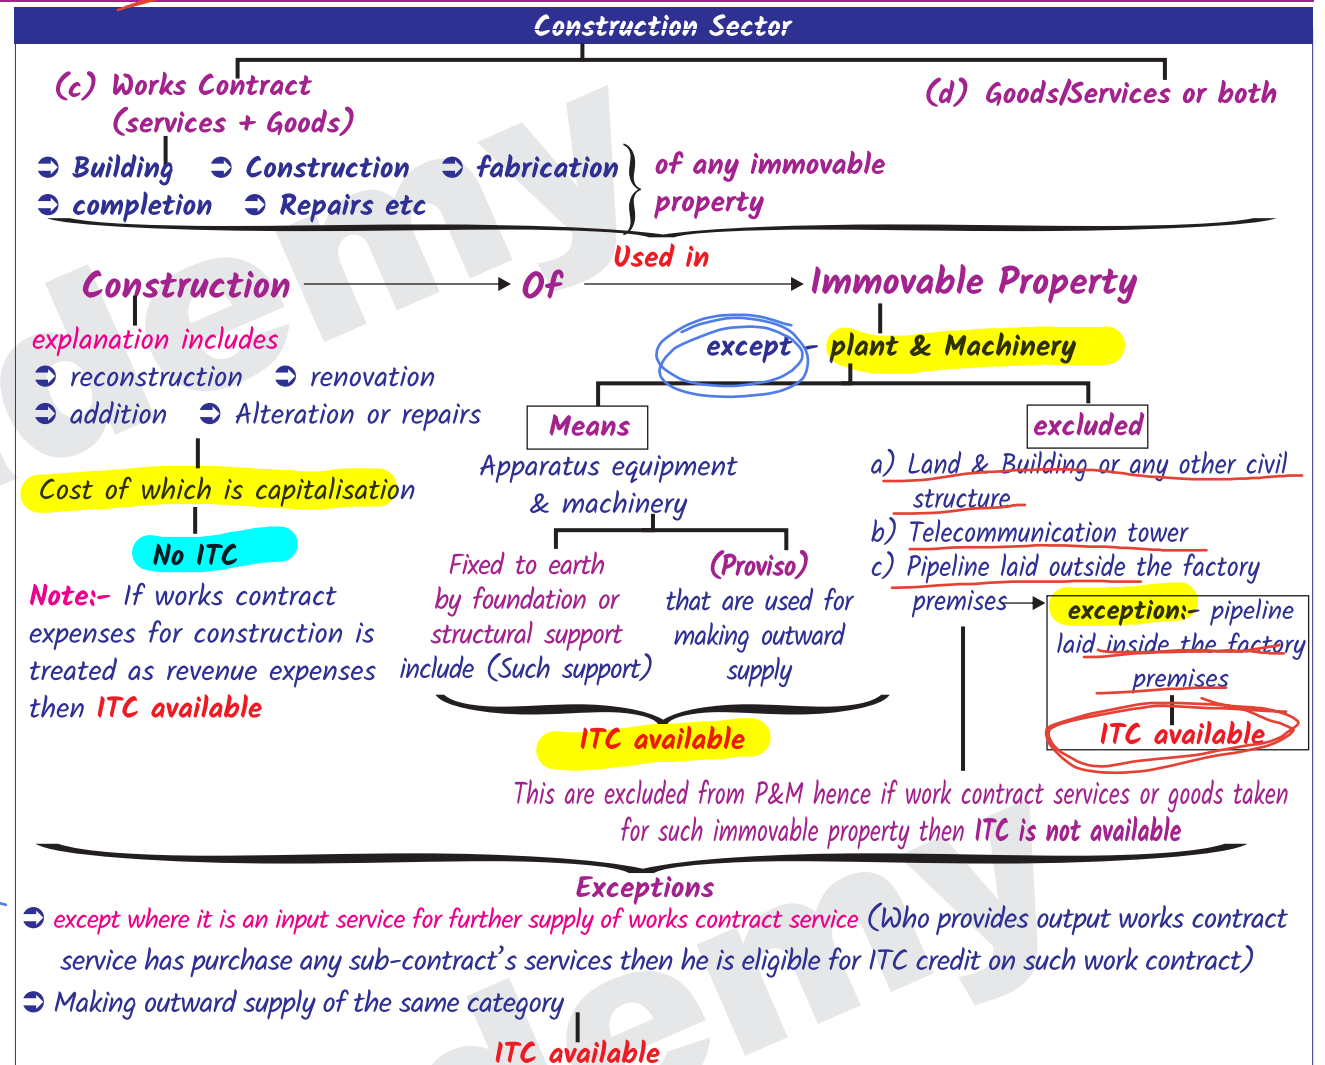 Construction Sector
(c) Works Contract
(services + Goods)
(d) Goods/Services or both
➲ Building ➲ Construction ➲ fabrication
➲ completion ➲ Repairs etc
of any immovable
property
Used in
Construction Of Immovable Property
explanation includes
➲ reconstruction ➲ renovation
➲ addition ➲ Alteration or repairs
Cost of which is capitalisation
No ITC
Note:- If works contract
expenses for construction is
treated as revenue expenses
then ITC available
except - plant & Machinery
Means
Apparatus equipment
& machinery
Fixed to earth
by foundation or
structural support
include (Such support)
(Proviso)
that are used for
making outward
supply
ITC available
excluded
a) Land & Building or any other civil
structure
b) Telecommunication tower
c) Pipeline laid outside the factory
premises
exception:- pipeline
laid inside the factory
premises
ITC available
This are excluded from P&M hence if work contract services or goods taken
for such immovable property then ITC is not available
Exceptions
➲ except where it is an input service for further supply of works contract service (Who provides output works contract
service has purchase any sub-contract's services then he is eligible for ITC credit on such work contract)
➲ Making outward supply of the same category
ITC available
demy
demy